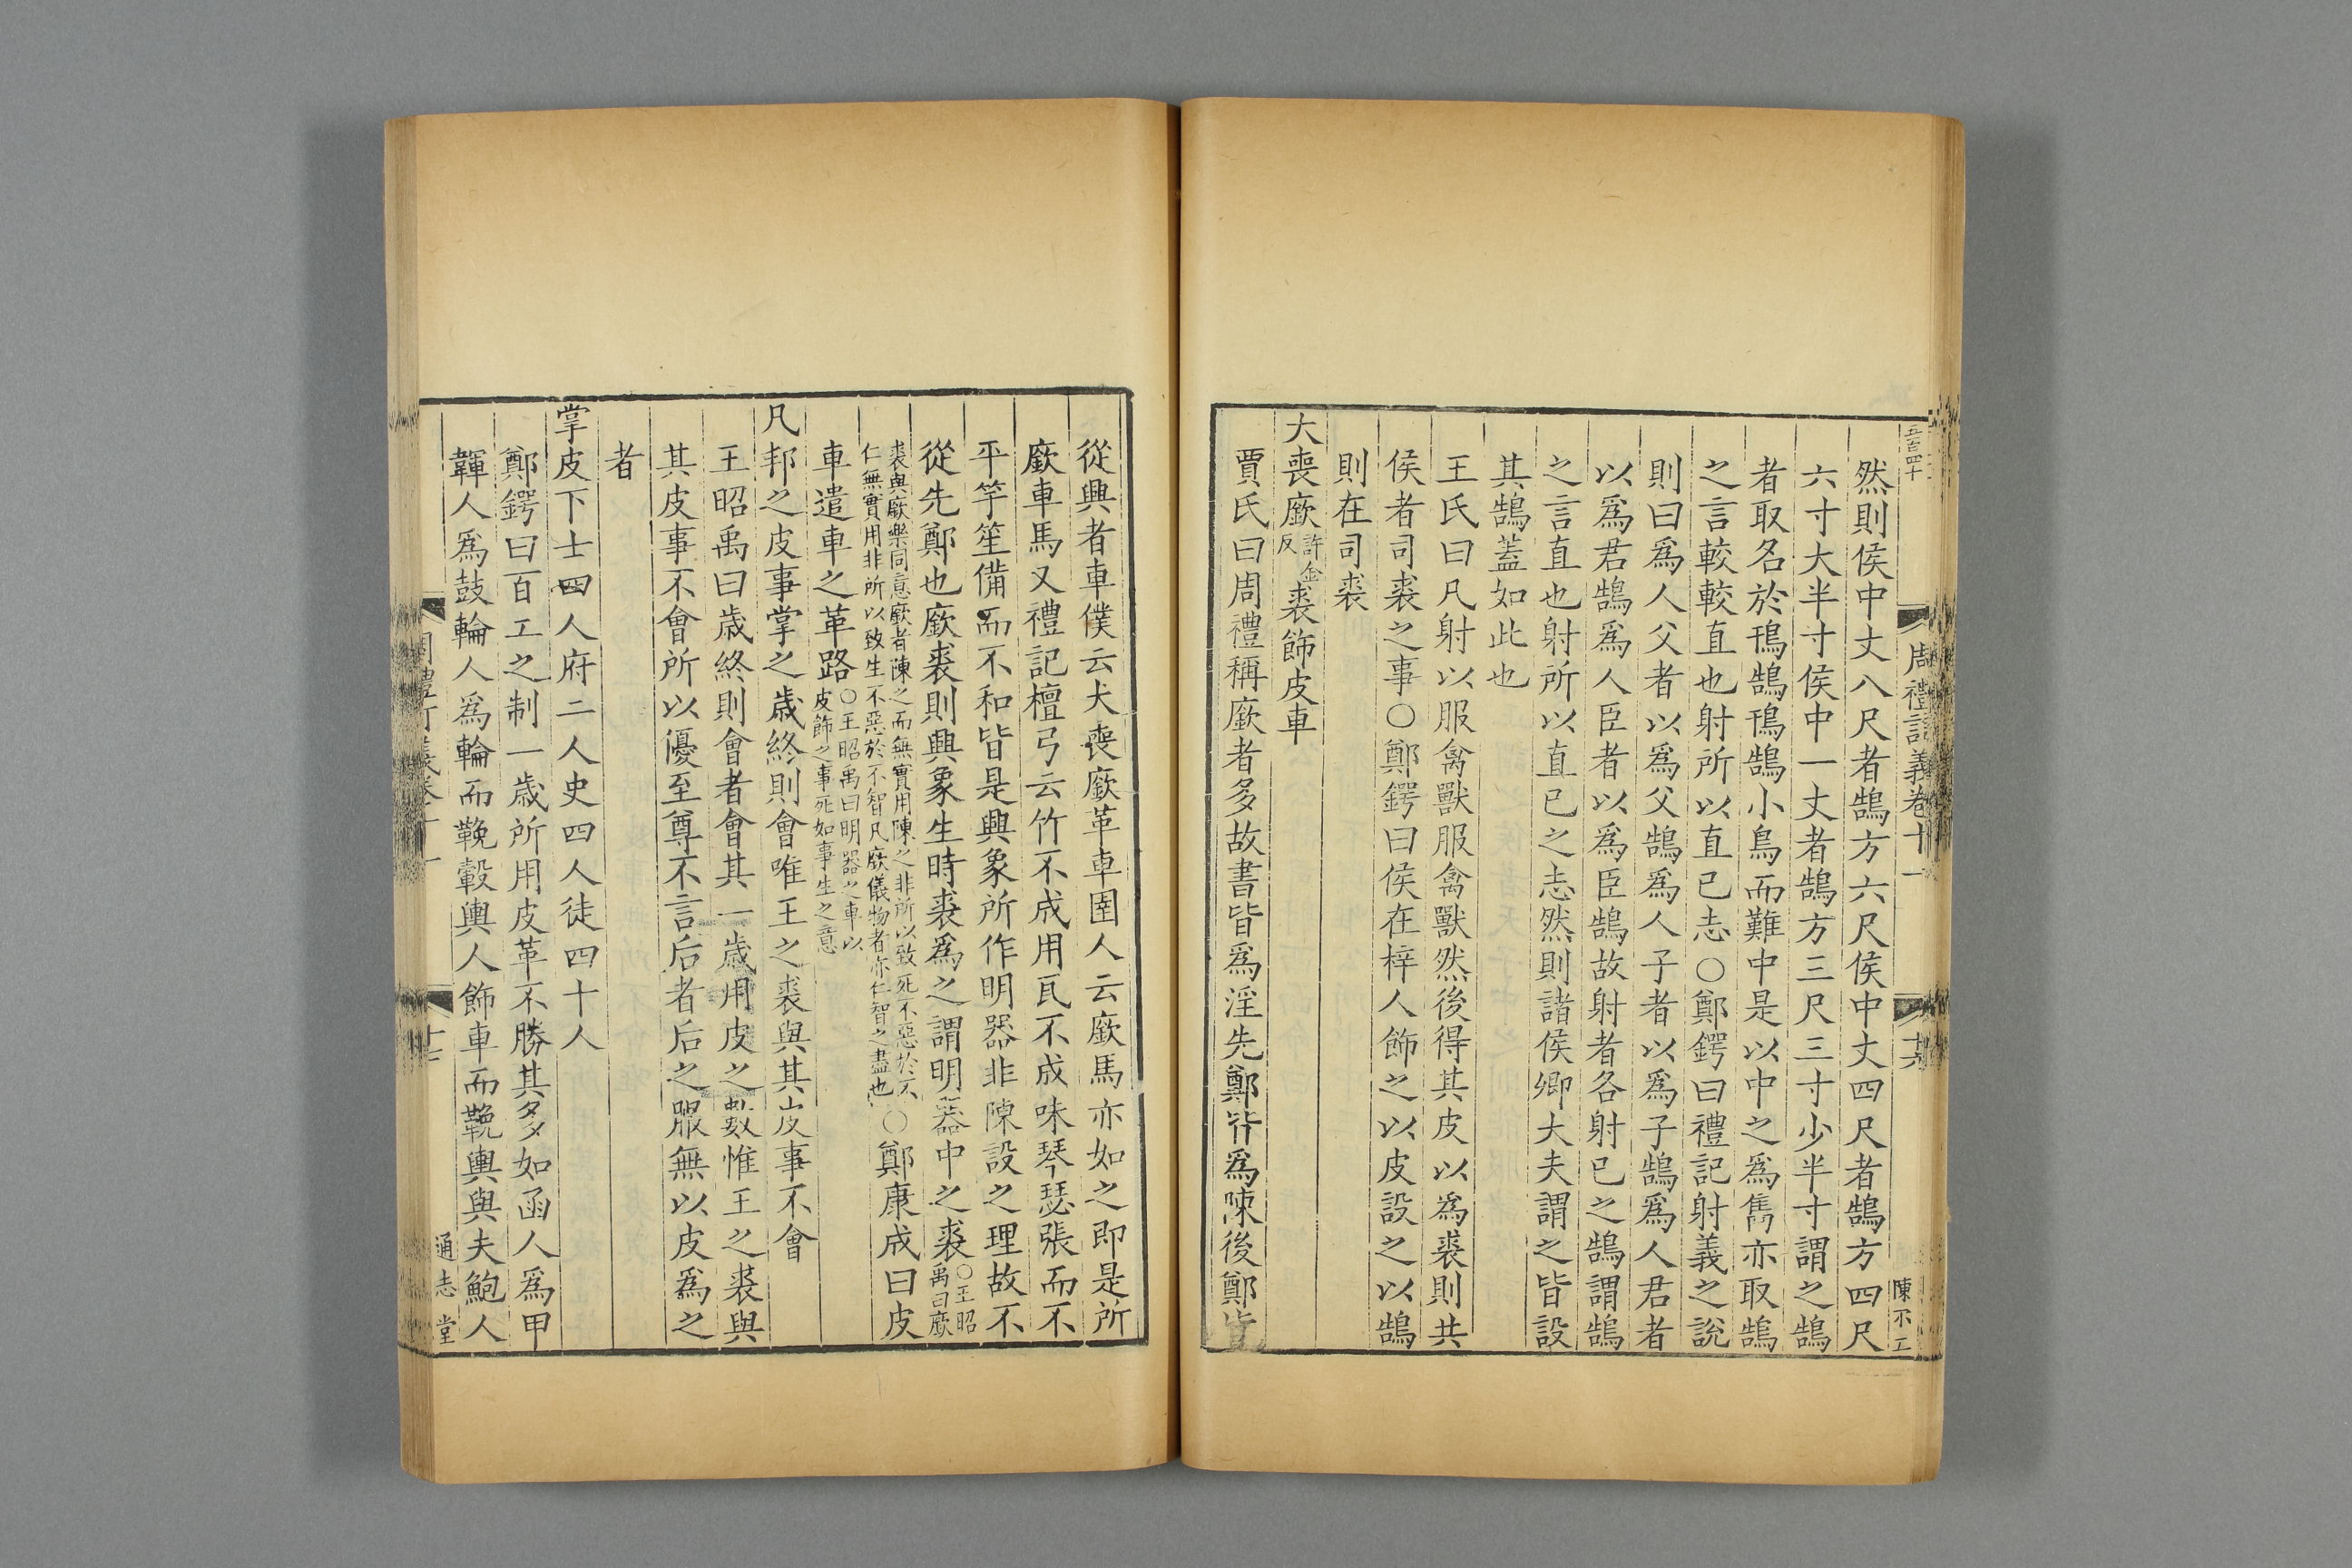 五百四十
周禮訂義卷十一
十六
陳不工
然則侯中丈八尺者鵠方六尺侯中丈四尺者鵠方四尺
六寸大半寸侯中一丈者鵠方三尺三寸少半寸謂之鵠
者取名於鳱鵠鳱鵠小鳥而難中是以中之為雋亦取鵠
之言較較直也射所以直已志○鄭鍔曰禮記射義之說
則曰爲人父者以爲父鵠爲人子者以爲子鵠爲人君者
以爲君鵠爲人臣者以爲臣鵠故射者各射已之鵠謂鵠
之言直也射所以直已之志然則諸侯卿大夫謂之皆設
其鵠蓋如此也
王氏曰凡射以服禽獸服禽獸然後得其皮以為裘則共
侯者司裘之事○鄭鍔曰侯在梓人飾之以皮設之以鵠
則在司裘
大喪廞許金反裘飾皮車
賈氏曰周禮稱廞者多故書皆爲淫先鄭皆爲陳後鄭皆
從興者車僕云大喪廞革車圉人云廞馬亦如之即是所
廞車馬又禮記檀弓云竹不成用瓦不成味琴瑟張而不
平竽笙備而不和皆是興象所作明器非陳設之理故不
從先鄭也廞裘則興象生時裘爲之謂明器中之裘○王昭禹曰廞
裘與廞樂同意廞者陳之而無實用陳之非所以致死不惡於不
仁無實用非所以致生不惡於不智凡廞儀物者亦仁智之盡也○鄭康成曰皮
車遣車之革路○王昭禹曰明器之車以皮飾之事死如事生之意
凡邦之皮事掌之歲終則會唯王之裘與其皮事不會
王昭禹曰歲終則會者會其一歲用皮之數惟王之裘與
其皮事不會所以優至尊不言后者后之服無以皮爲之
者
掌皮下士四人府二人史四人徒四十人
鄭鍔曰百工之制一歲所用皮革不勝其多如函人爲甲
韗人爲鼓輪人爲輪而鞔轂輿人飾車而鞔輿與夫鮑人
周禮訂義卷十一
十七
通志堂